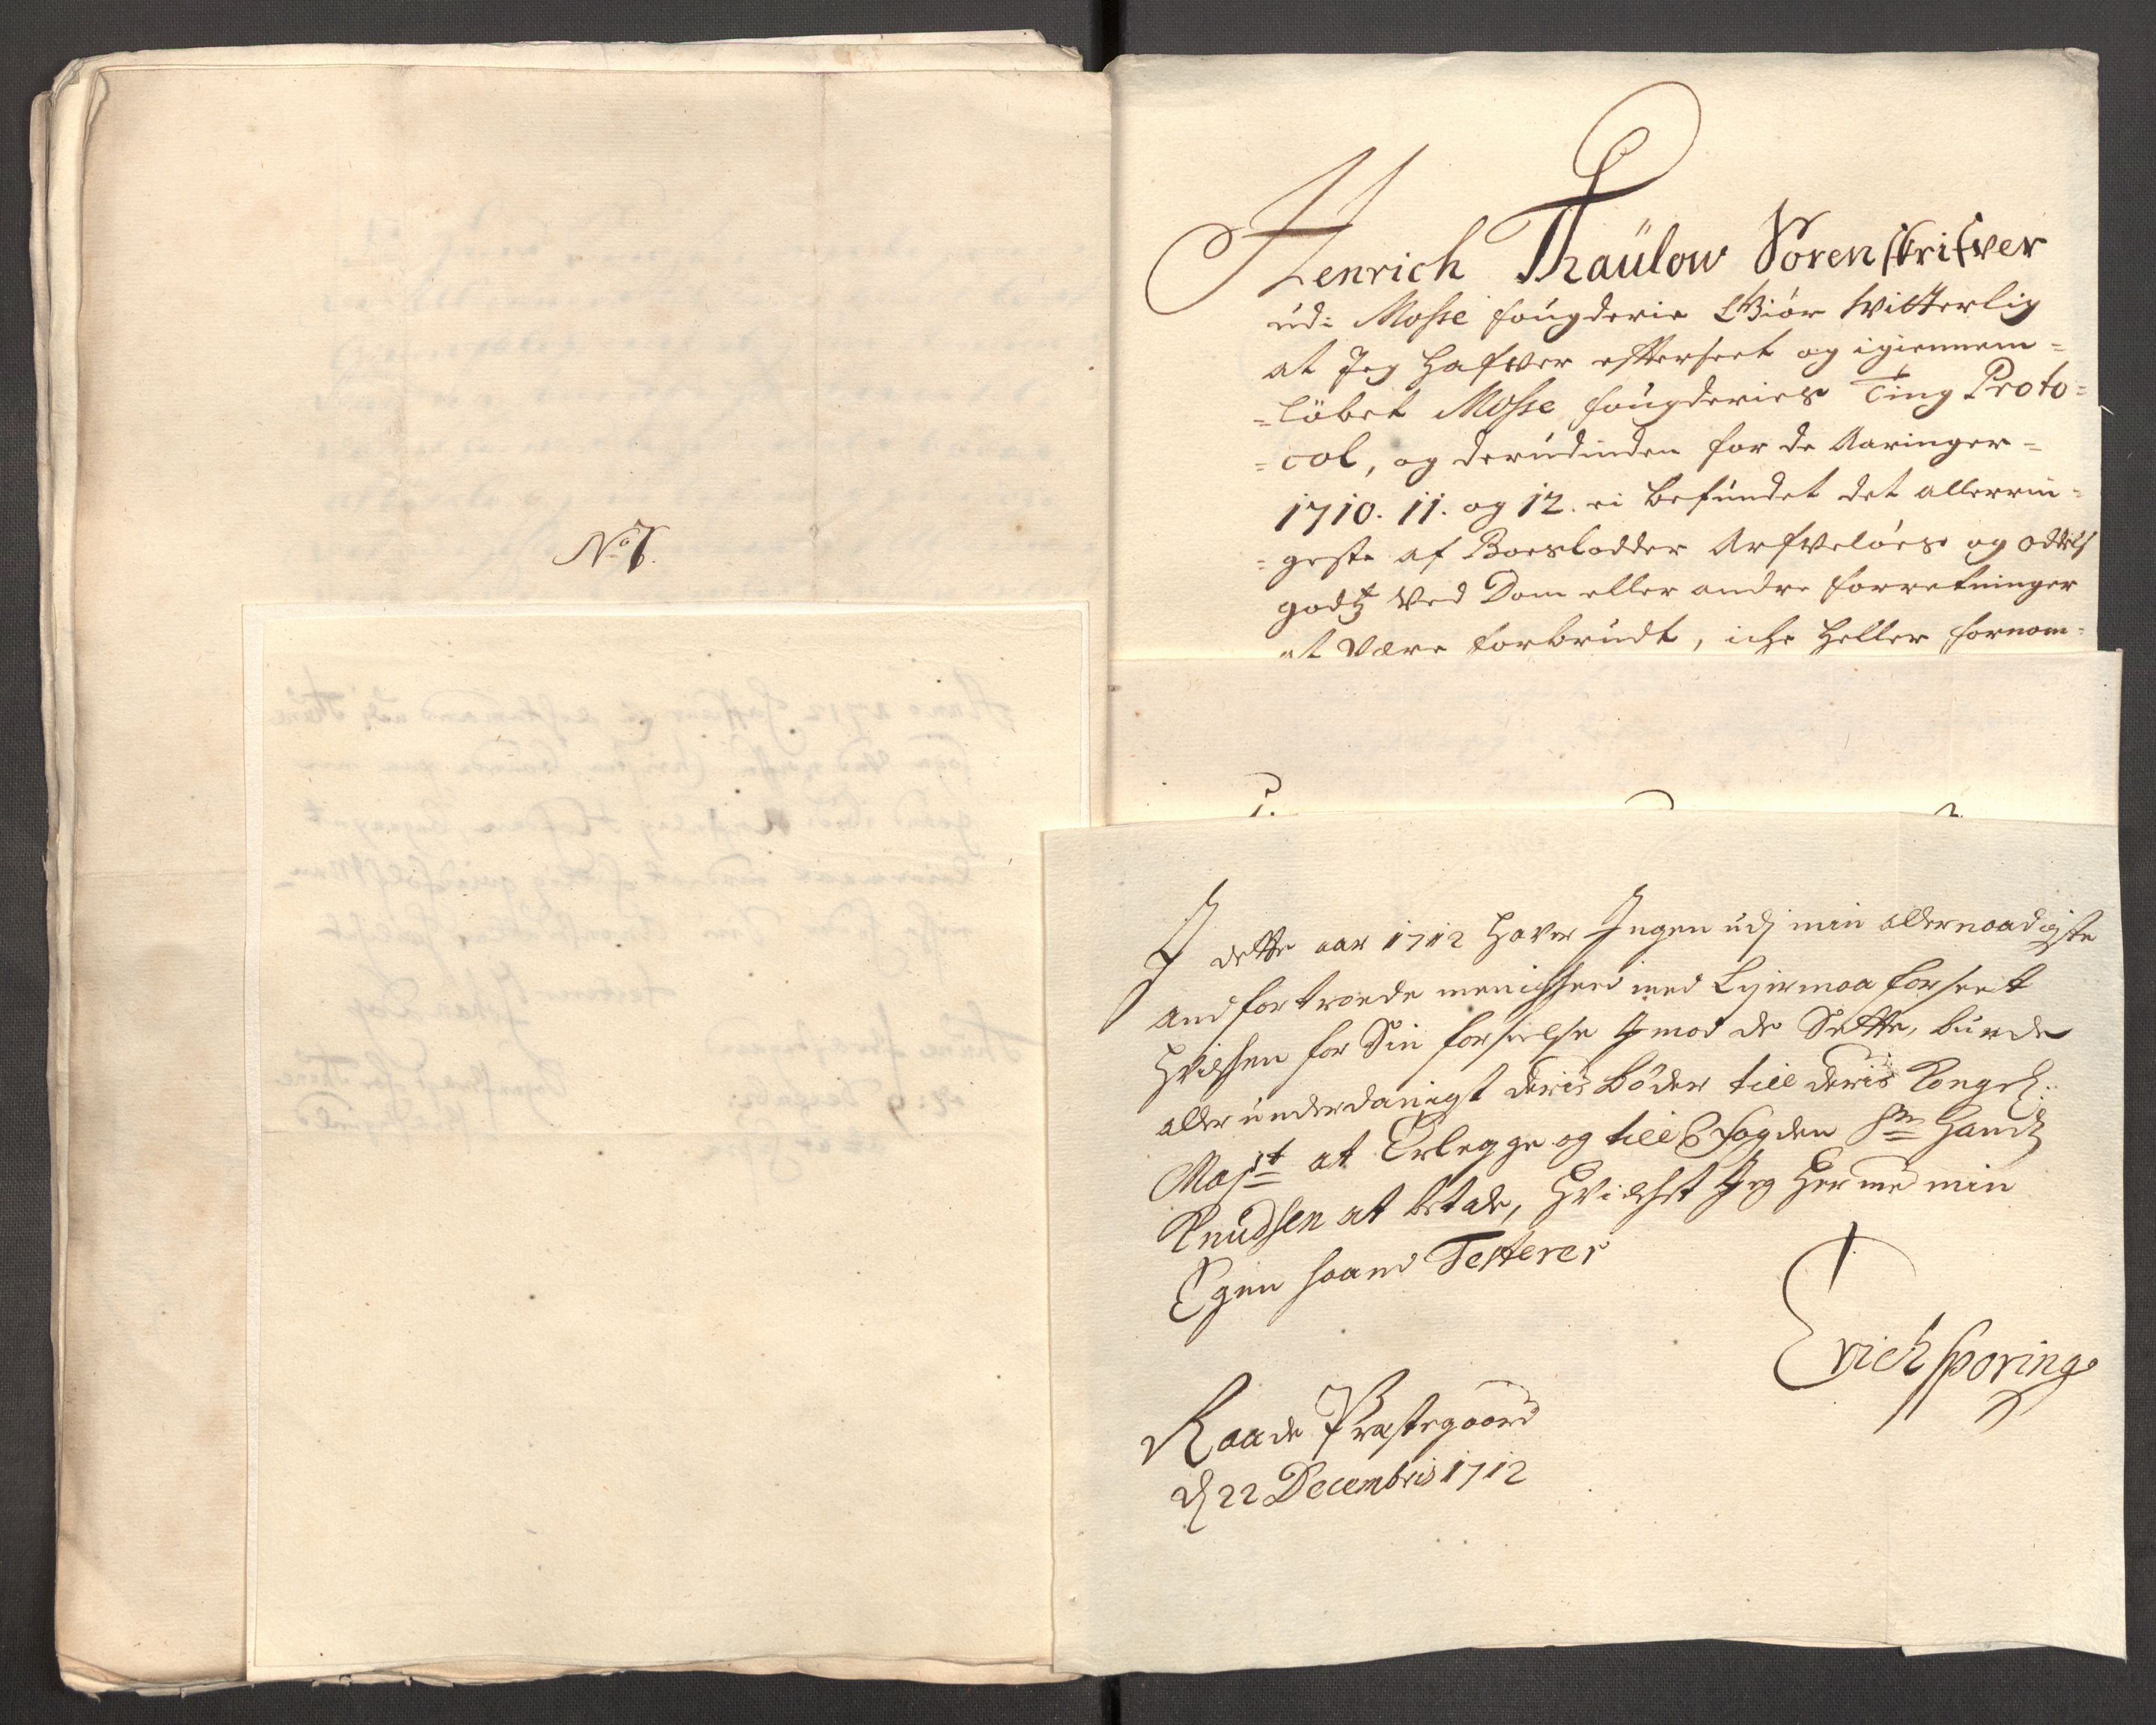 No 7.
Henrich Thaülow Sorenskrifver
üdi Mosse fougderie Giör witterlig
at Jeg hafver efterseet og igiennem=
=löbet Mosse fougderies Ting Proto=
=col, og derüdinden for de Aaringer=
1710. 11. og 12. ei befündet det allerrin=
=geste af Boeslodder Arfveløes og odels
godtz ved Dom eller andre forretninger
at være forbrüdt, iche heller fornom=
I dette aar 1712 haver Ingen udj min allernaadigste
anfortroede menighed med Leiermaal forseet
hvilchen for Sin forseelse Imod de Sette, burde
allerunderdanigst deris bøder till deris Kongel:
Majst at Erlegge og till Fogden Sr Handtz
Knudsen at betale, hvilchet Jeg her med min
Egen haand Testerer
Erich Sporing
Raade Præstegaard
dj 22 Decembris 1712